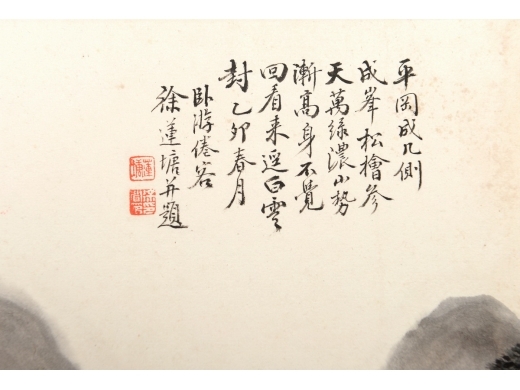 平岡成几側
成峯松檜參
天萬綠濃山勢
漸高身不覺
回看来逕白雲
封乙卯春月
卧游倦客
徐蓮塘并題
蓮
塘